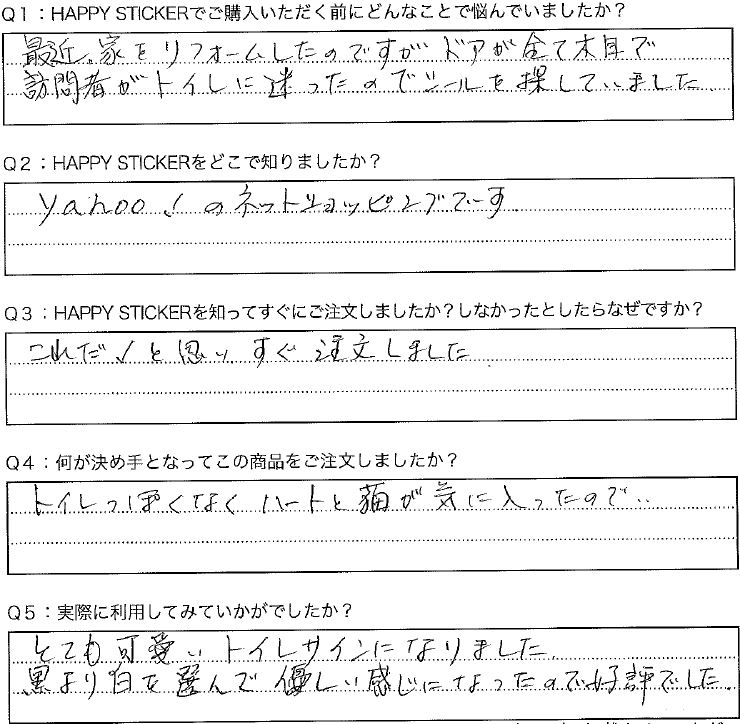 Q1：HAPPY STICKERでご購入いただく前にどんなことで悩んでいましたか？
最近、家をリフォームしたのですがドアが全て木目で
訪問者がトイレに迷ったのでシールを探していました
Q2：HAPPY STICKERをどこで知りましたか？
yahoo！のネットショッピングでです
Q3：HAPPY STICKERを知ってすぐにご注文しましたか？しなかったとしたらなぜですか？
これだ！と思い、すぐ注文しました
Q4：何が決め手となってこの商品をご注文しましたか？
トイレっぽくなくハートと猫が気に入ったので‥
Q5：実際に利用してみていかがでしたか？
とても可愛いトイレサインになりました
黒より白を選んで優しい感じになったので好評でした。